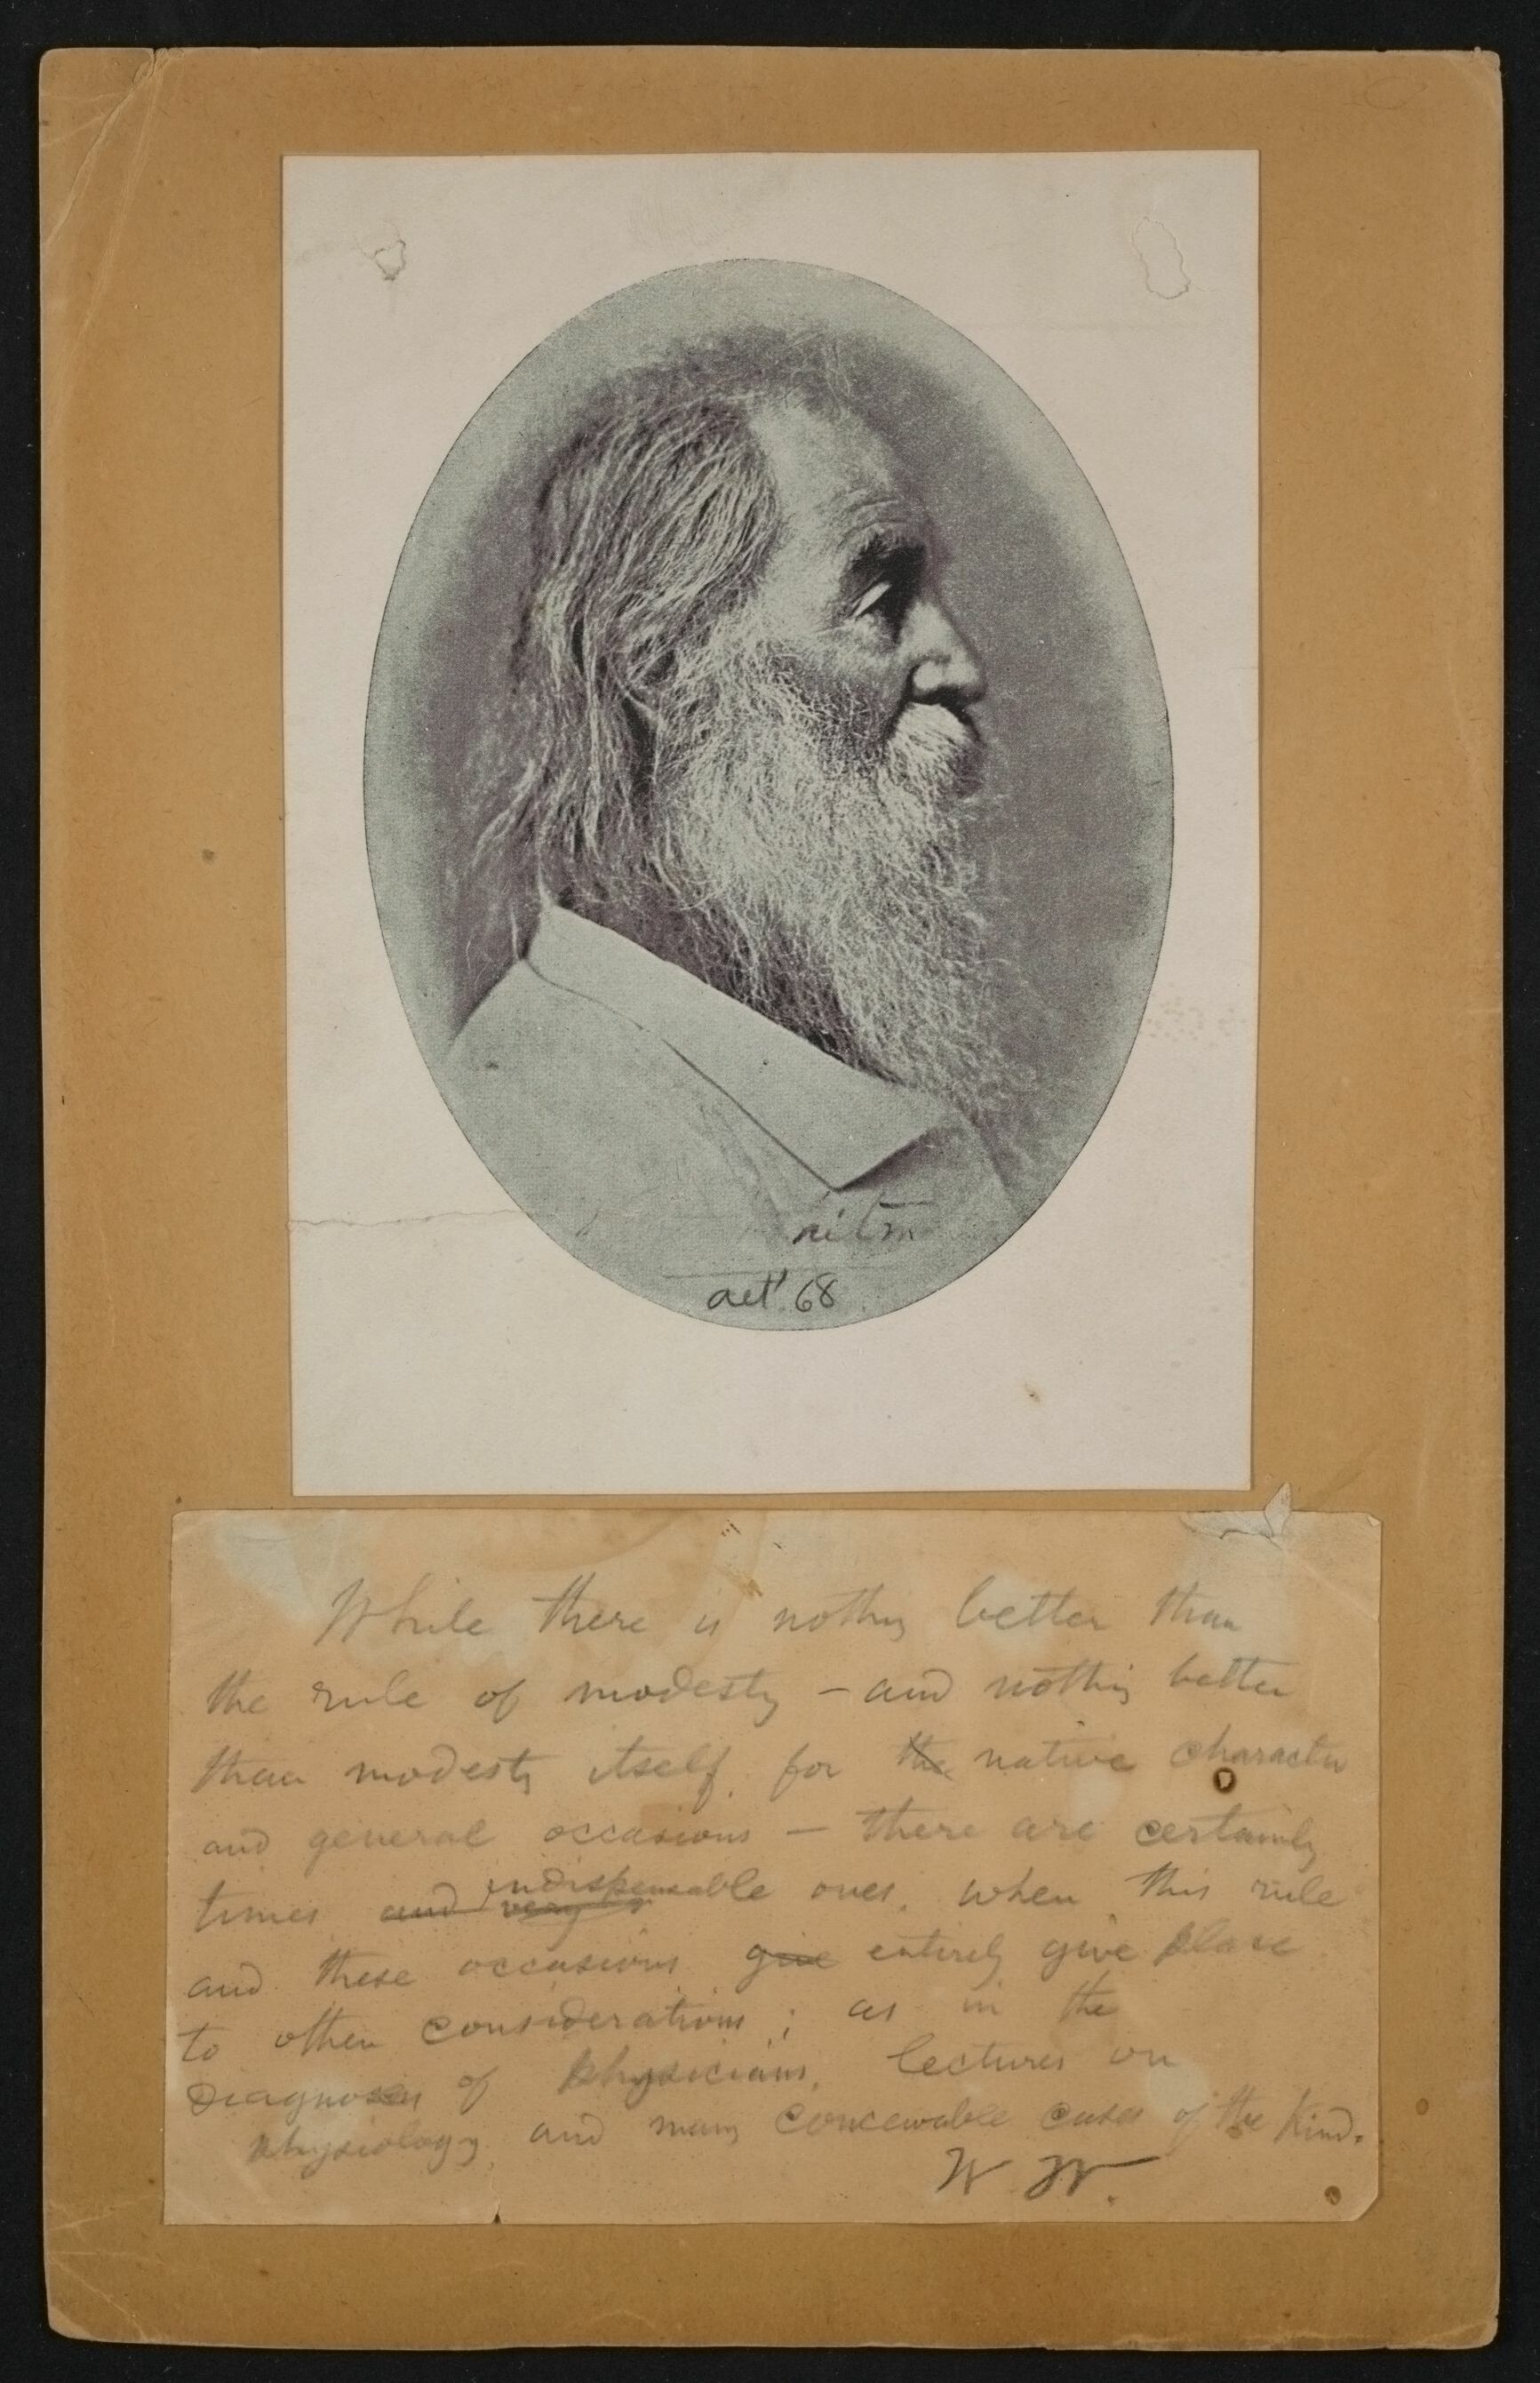 aet' 68
While there is nothing better than
the rule of modesty – and nothing better
than modesty itself, for the native character
and general occasions – there are certainly
times and very indispensable ones, when this rule
and these occasions give entirely give place
to other considerations; as in the
diagnoses of physicians, lectures on
physiology, and many conceivable cases of the kind.
W. W.